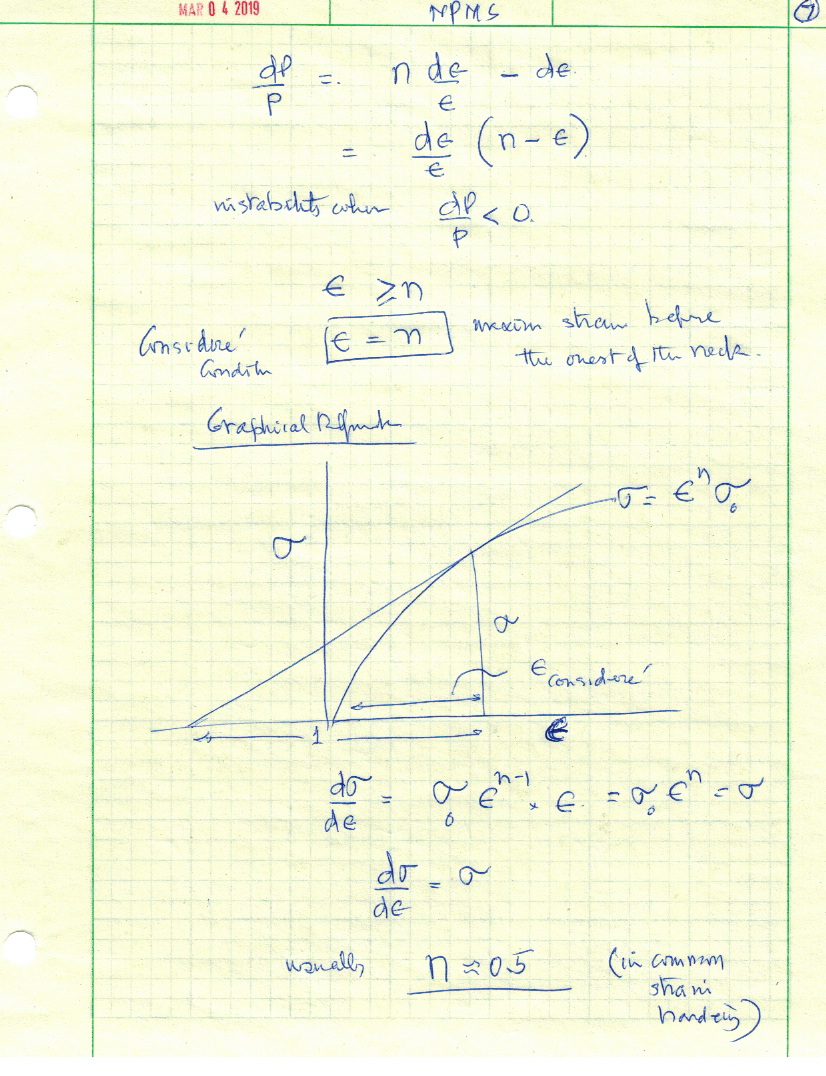 MAR 0 4 2019
NPMS
7
dP/P = n dϵ/ϵ - dϵ
= dϵ/ϵ (n - ϵ)
instability when dP/P < 0.
ϵ ⩾ n
Consideré Condition
ϵ = n
maxim strain before
the onest of the neck.
Graphical
σ = ϵⁿ σ₀
σ
σ
ϵ consideré
1
ϵ
dσ/dϵ = σ₀ ϵⁿ⁻¹ × ϵ. = σ₀ ϵⁿ = σ
dσ/dϵ = σ
usually n ≈ 0.5 (in common
strain
hardening)